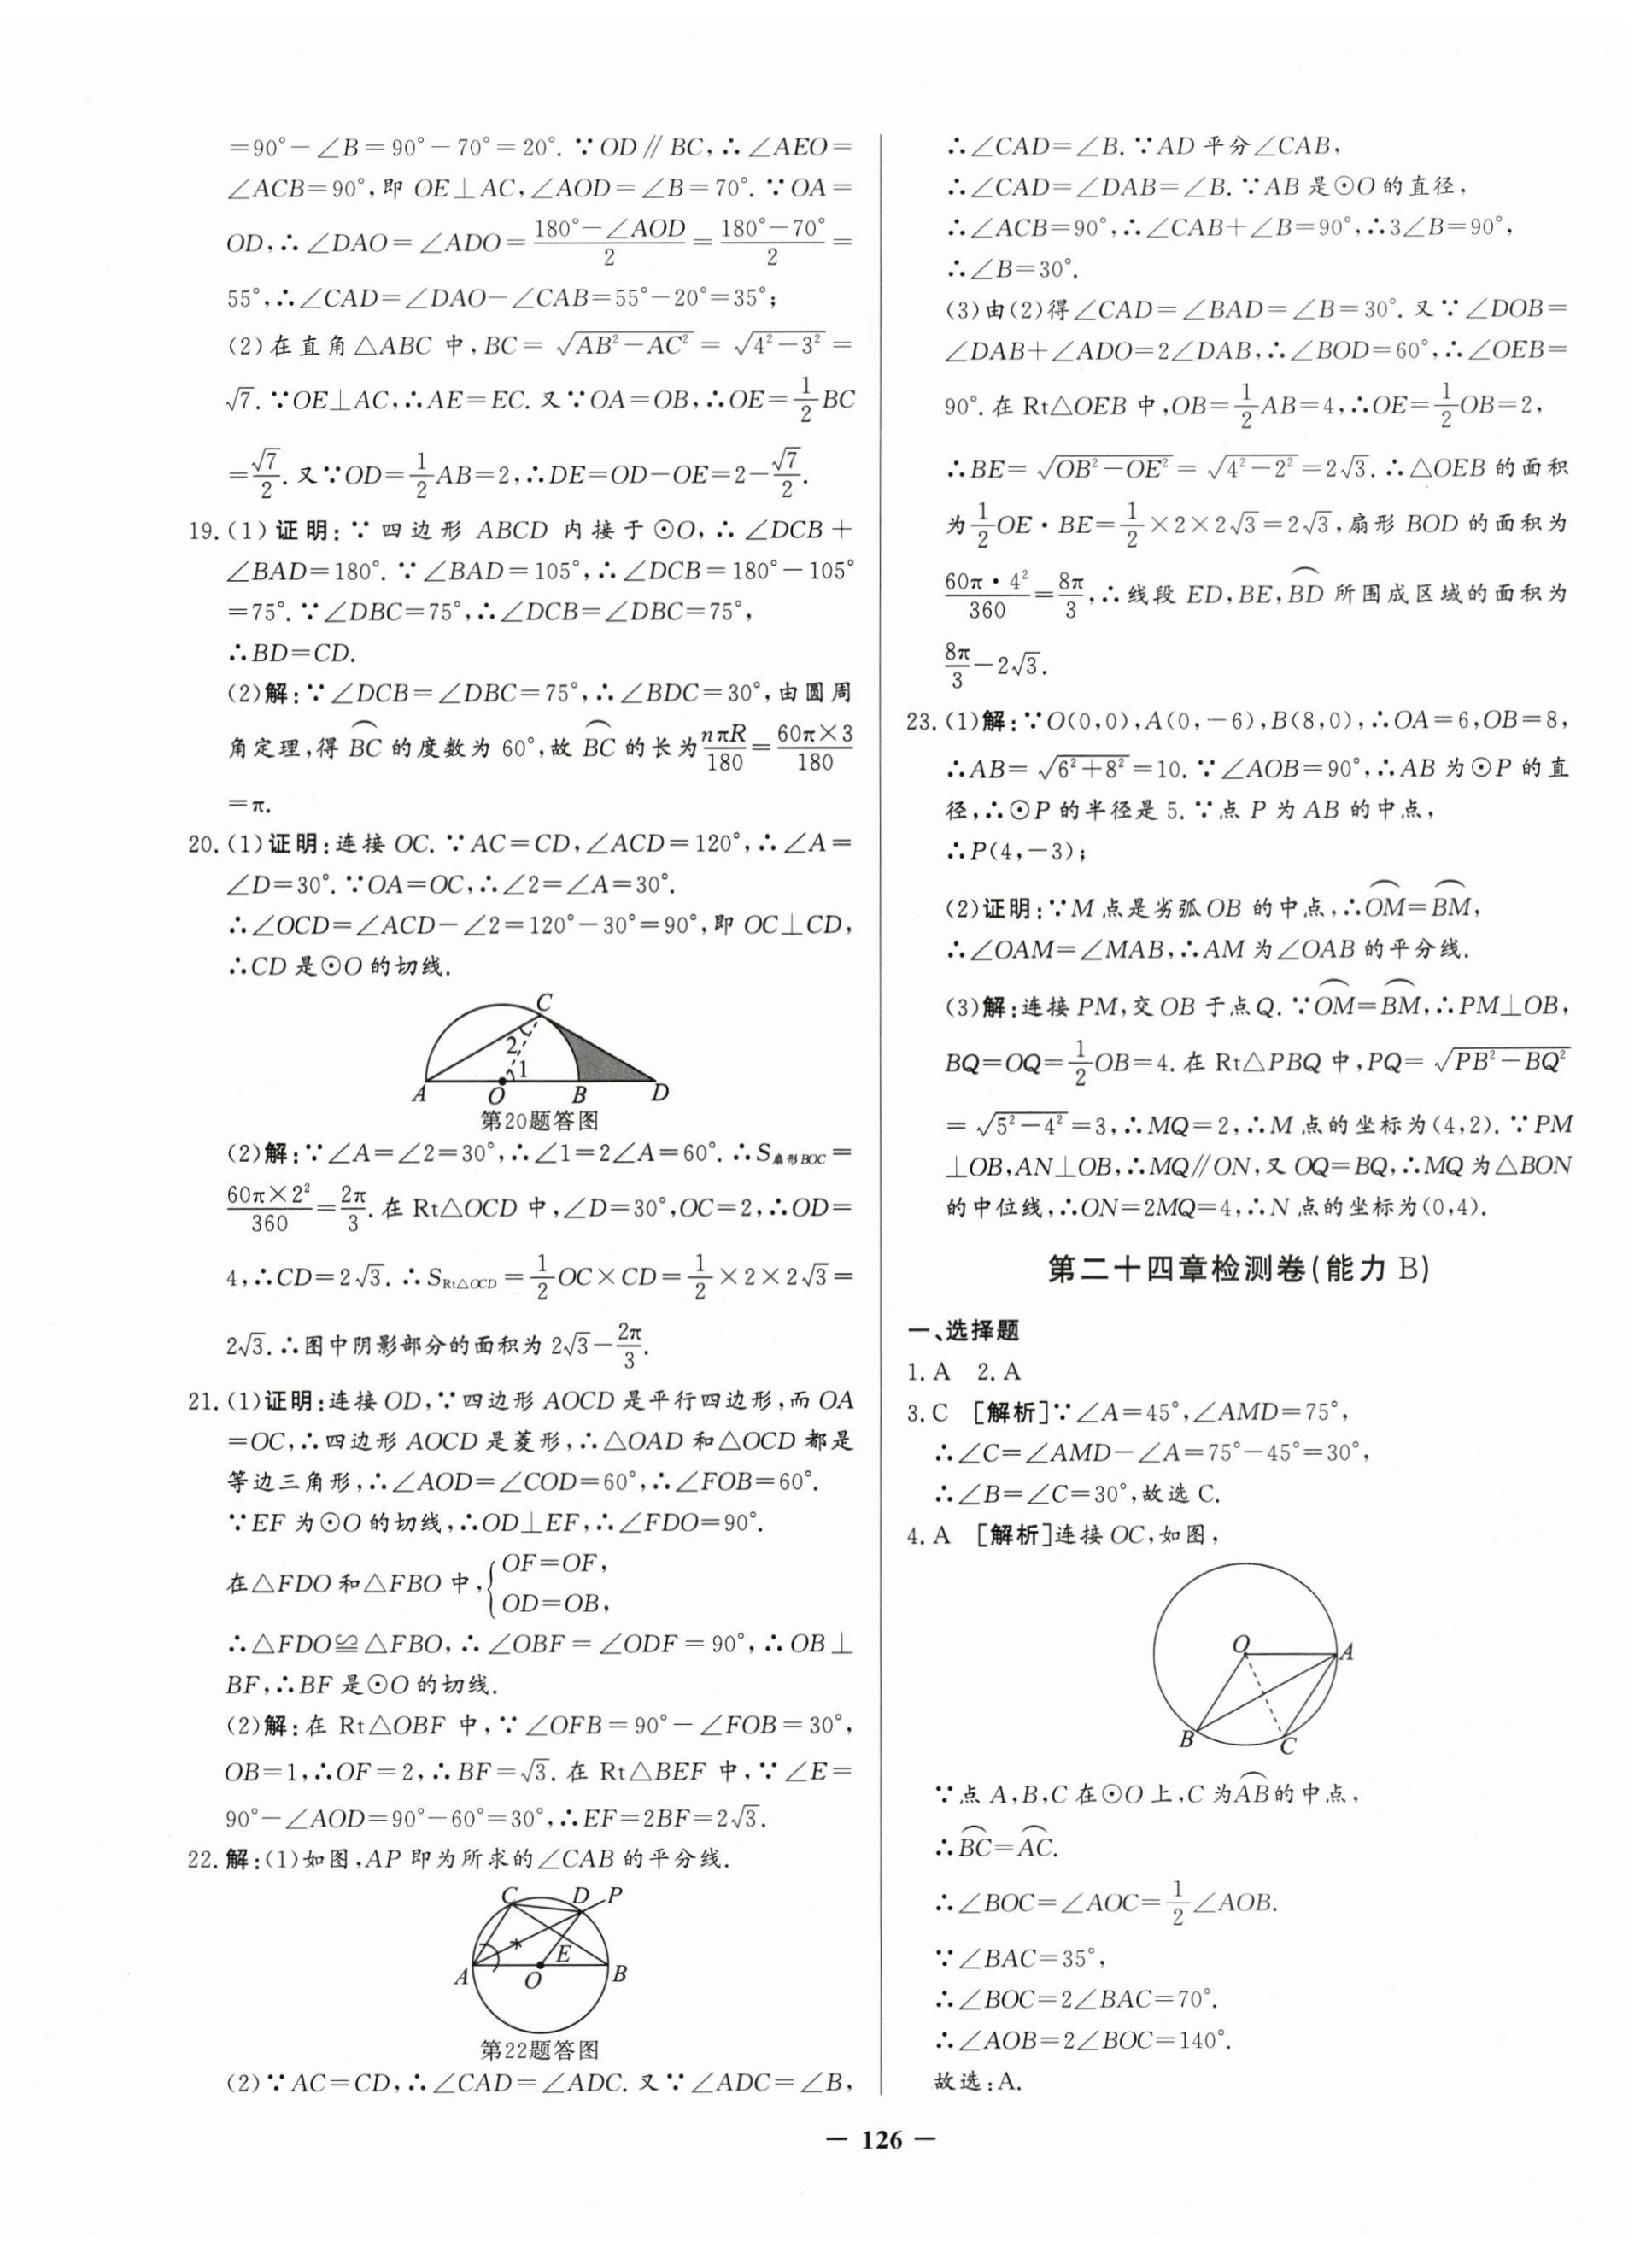 =90°-∠B=90°-70°=20°.∵OD∥BC,∴∠AEO=
∠ACB=90°,即 OE⊥AC,∠AOD=∠B=70°.∵OA=
OD,∴∠DAO=∠ADO=\frac{180°-∠AOD}{2}=\frac{180°-70°}{2}=
55°,∴∠CAD=∠DAO-∠CAB=55°-20°=35°;
(2)在直角△ABC 中,BC=\sqrt{AB²-AC²}=\sqrt{4²-3²}=
√7.∵OE⊥AC,∴AE=EC.又∵OA=OB,∴OE=\frac{1}{2}BC
=\frac{√7}{2}.又∵OD=\frac{1}{2}AB=2,∴DE=OD-OE=2-\frac{√7}{2}.
19.(1)证明:∵四边形 ABCD 内接于⊙O,∴∠DCB+
∠BAD=180°.∵∠BAD=105°,∴∠DCB=180°-105°
=75°.∵∠DBC=75°,∴∠DCB=∠DBC=75°,
∴BD=CD.
(2)解:∵∠DCB=∠DBC=75°,∴∠BDC=30°,由圆周
角定理,得\overset{⌒}{BC}的度数为 60°,故\overset{⌒}{BC}的长为\frac{nπR}{180}=\frac{60π×3}{180}
=π.
20.(1)证明:连接 OC.∵AC=CD,∠ACD=120°,∴∠A=
∠D=30°.∵OA=OC,∴∠2=∠A=30°.
∴∠OCD=∠ACD-∠2=120°-30°=90°,即 OC⊥CD,
∴CD 是⊙O 的切线.
C
2
1
A O B D
第20题答图
(2)解:∵∠A=∠2=30°,∴∠1=2∠A=60°.∴S扇形BOC=
\frac{60π×2²}{360}=\frac{2π}{3}.在 Rt△OCD 中,∠D=30°,OC=2,∴OD=
4,∴CD=2√3.∴S_{Rt△OCD}=\frac{1}{2}OC×CD=\frac{1}{2}×2×2√3=
2√3.∴图中阴影部分的面积为 2√3-\frac{2π}{3}.
21.(1)证明:连接 OD,∵四边形 AOCD 是平行四边形,而 OA
=OC,∴四边形 AOCD 是菱形,∴△OAD 和△OCD 都是
等边三角形,∴∠AOD=∠COD=60°,∴∠FOB=60°.
∵EF 为⊙O 的切线,∴OD⊥EF,∴∠FDO=90°.
在△FDO 和△FBO 中,{OF=OF,
OD=OB,
∴△FDO≌△FBO,∴∠OBF=∠ODF=90°,∴OB⊥
BF,∴BF 是⊙O 的切线.
(2)解:在 Rt△OBF 中,∵∠OFB=90°-∠FOB=30°,
OB=1,∴OF=2,∴BF=√3.在 Rt△BEF 中,∵∠E=
90°-∠AOD=90°-60°=30°,∴EF=2BF=2√3.
22.解:(1)如图,AP 即为所求的∠CAB 的平分线.
C D P
E
A O B
第22题答图
(2)∵AC=CD,∴∠CAD=∠ADC.又∵∠ADC=∠B,
∴∠CAD=∠B.∵AD 平分∠CAB,
∴∠CAD=∠DAB=∠B.∵AB 是⊙O 的直径,
∴∠ACB=90°,∴∠CAB+∠B=90°,∴3∠B=90°,
∴∠B=30°.
(3)由(2)得∠CAD=∠BAD=∠B=30°.又∵∠DOB=
∠DAB+∠ADO=2∠DAB,∴∠BOD=60°,∴∠OEB=
90°.在 Rt△OEB 中,OB=\frac{1}{2}AB=4,∴OE=\frac{1}{2}OB=2,
∴BE=\sqrt{OB²-OE²}=\sqrt{4²-2²}=2√3.∴△OEB 的面积
为\frac{1}{2}OE·BE=\frac{1}{2}×2×2√3=2√3,扇形 BOD 的面积为
\frac{60π·4²}{360}=\frac{8π}{3},∴线段 ED,BE,\overset{⌒}{BD}所围成区域的面积为
\frac{8π}{3}-2√3.
23.(1)解:∵O(0,0),A(0,-6),B(8,0),∴OA=6,OB=8,
∴AB=\sqrt{6²+8²}=10.∵∠AOB=90°,∴AB 为⊙P 的直
径,∴⊙P 的半径是 5.∵点 P 为 AB 的中点,
∴P(4,-3);
(2)证明:∵M 点是劣弧 OB 的中点,∴\overset{⌒}{OM}=\overset{⌒}{BM},
∴∠OAM=∠MAB,∴AM 为∠OAB 的平分线.
(3)解:连接 PM,交 OB 于点 Q.∵\overset{⌒}{OM}=\overset{⌒}{BM},∴PM⊥OB,
BQ=OQ=\frac{1}{2}OB=4.在 Rt△PBQ 中,PQ=\sqrt{PB²-BQ²}
=\sqrt{5²-4²}=3,∴MQ=2,∴M 点的坐标为(4,2).∵PM
⊥OB,AN⊥OB,∴MQ∥ON,又 OQ=BQ,∴MQ 为△BON
的中位线,∴ON=2MQ=4,∴N 点的坐标为(0,4).
第二十四章检测卷(能力 B)
一、选择题
1.A 2.A
3.C [解析]∵∠A=45°,∠AMD=75°,
∴∠C=∠AMD-∠A=75°-45°=30°,
∴∠B=∠C=30°,故选 C.
4.A [解析]连接 OC,如图,
O A
B C
∵点 A,B,C 在⊙O 上,C 为\overset{⌒}{AB}的中点,
∴\overset{⌒}{BC}=\overset{⌒}{AC}.
∴∠BOC=∠AOC=\frac{1}{2}∠AOB.
∵∠BAC=35°,
∴∠BOC=2∠BAC=70°.
∴∠AOB=2∠BOC=140°.
故选:A.
— 126 —